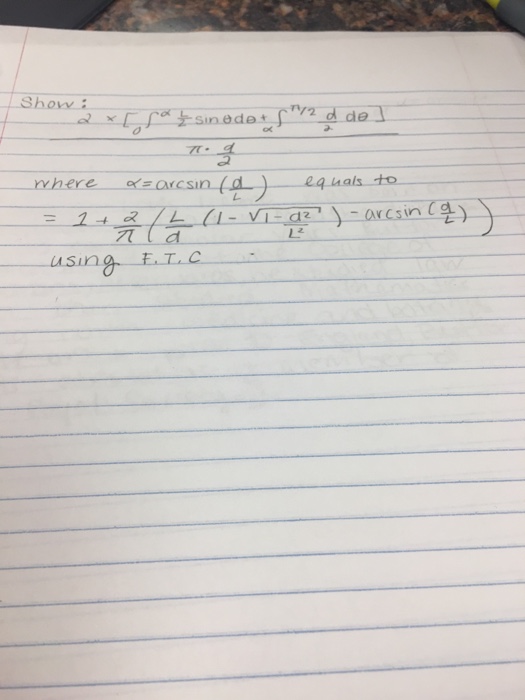 Show:
2 × [₀∫^α L/2 sinθdθ + α∫^π/2 d/2 dθ]
π · d/2
where α = arcsin (d/L) equals to
= 1 + 2/π (L/d (1 - √1 - d²/L²) - arcsin (d/L))
using F.T.C